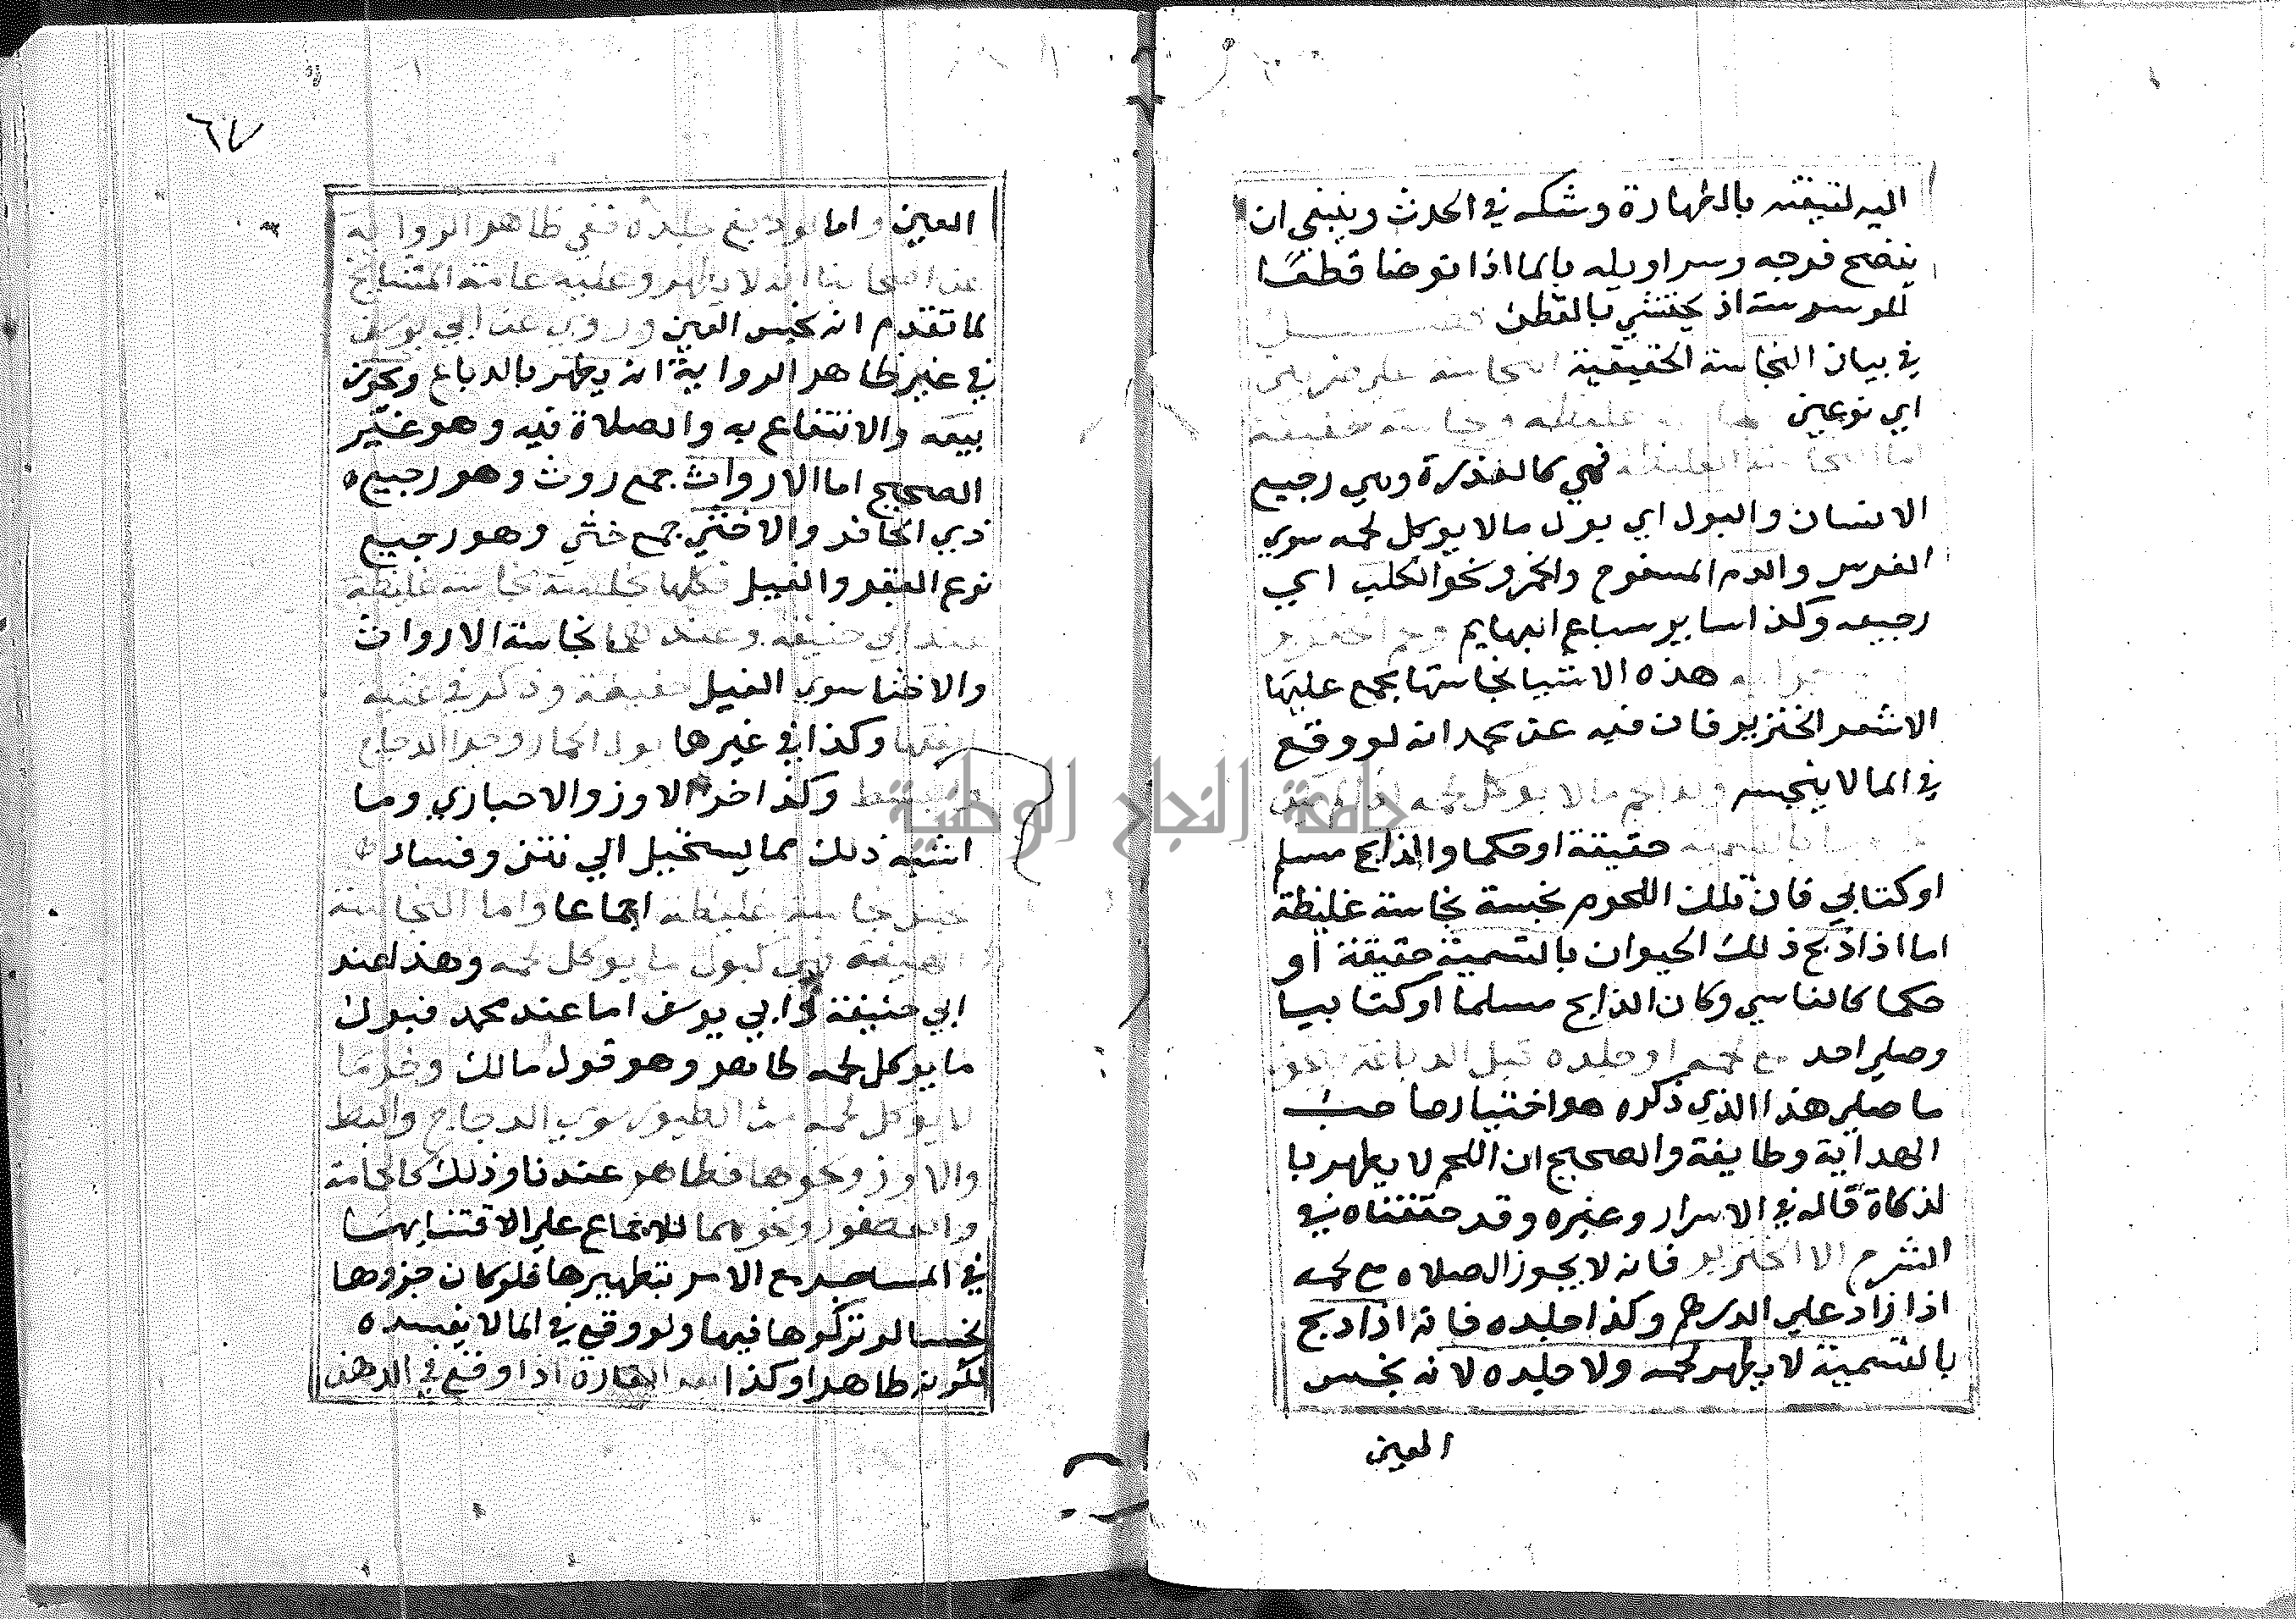 اليه لتيقنه بالطهارة وشكه في الحدث وينبغي ان
ينضح فرجه وسراويله بالما اذا توضا قطعًا
للوسوسة اذ يحتشي بالقطن فصل
في بيان النجاسة الحقيقية النجاسة علي ضربين
اي نوعين نجاسة غليظة ونجاسة خفيفة
اما النجاسة الغليظة فهي كالعذرة وهي رجيع
الانسان والبول اي بول مالا يوكل لحمه سوي
الفرس والدم المسفوح والخمر ونحو الكلب اي
رجيعه وكذا ساير سباع البهايم ولحم الخنزير
هذه الاشيا نجاستها مجمع عليها
الا شعر الخنزير فان فيه عن محمد انه لو وقع
في الما لا ينجسه ولحم ما لا يوكل لحمه اذا لم يكن
بالتسمية حقيقة او حكما والذابح مسلم
او كتابي فان تلك اللحوم نجسة نجاسة غليظة
اما اذا ذبح ذلك الحيوان بالتسمية حقيقة أو
حكما كالناسي وكان الذابح مسلما او كتابيا
وصلي احد مع لحمه او جلده قبل الدباغة يجوز
ما صلي هذا الذي ذكره هو اختيار صاحب
الهداية وطايفة والصحيح ان اللحم لا يطهر با
لذكاة قاله في الاسرار وغيره وقد حققناه في
الشرح الا الخنزير فانه لا يجوز الصلاه مع لحمه
اذا زاد علي الدرهم وكذا جلده فانه اذا ذبح
بالتسمية لا يطهر لحمه ولا جلده لانه نجس
العين
٦٧
العين واما لو دبغ جلده ففي ظاهر الرواية
عن اصحابنا انه لا يطهر وعليه عامة المشايخ
لما تقدم انه نجس العين وروي عن ابي يوسف
في غير ظاهر الرواية انه يطهر بالدباغ ويجوز
بيعه والانتفاع به والصلاة فيه وهو غير
الصحيح اما الارواث جمع روث وهو رجيع
ذي الحافر والاخثي جمع خثي وهو رجيع
نوع البقر والفيل فكلها نجسة نجاسة غليظة
عند ابي حنيفة وعندهما نجاسة الارواث
والاخثا سوي الفيل خفيفة وذكر في غنية
وكذا في غيرها بول الحمار وخرا الدجاج
والبط وكذا خرا الاوز والاحباري وما
اشبه ذلك مما يستحيل الي نتن وفساد
نجس نجاسة غليظة اجماعا واما النجاسة
الخفيفة فهي كبول ما يوكل لحمه وهذا عند
ابي حنيفة وابي يوسف اما عند محمد فبول
ما يوكل لحمه طاهر وهو قول مالك وخر ما
لا يوكل لحمه من الطيور سوي الدجاج والبط
والاوز ونحوها فطاهر عندنا وذلك كالحمامة
والعصفور ونحوهما للاجماع علي الاقتنا بها
في المساجد مع الامر بتطهيرها فلو كان خروها
نجسا لو تركوها فيها ولو وقع في الما لا يفسده
لكونه طاهرا وكذا بعر الفارة اذا وقع في الدهن
جامعة النجاح الوطنية